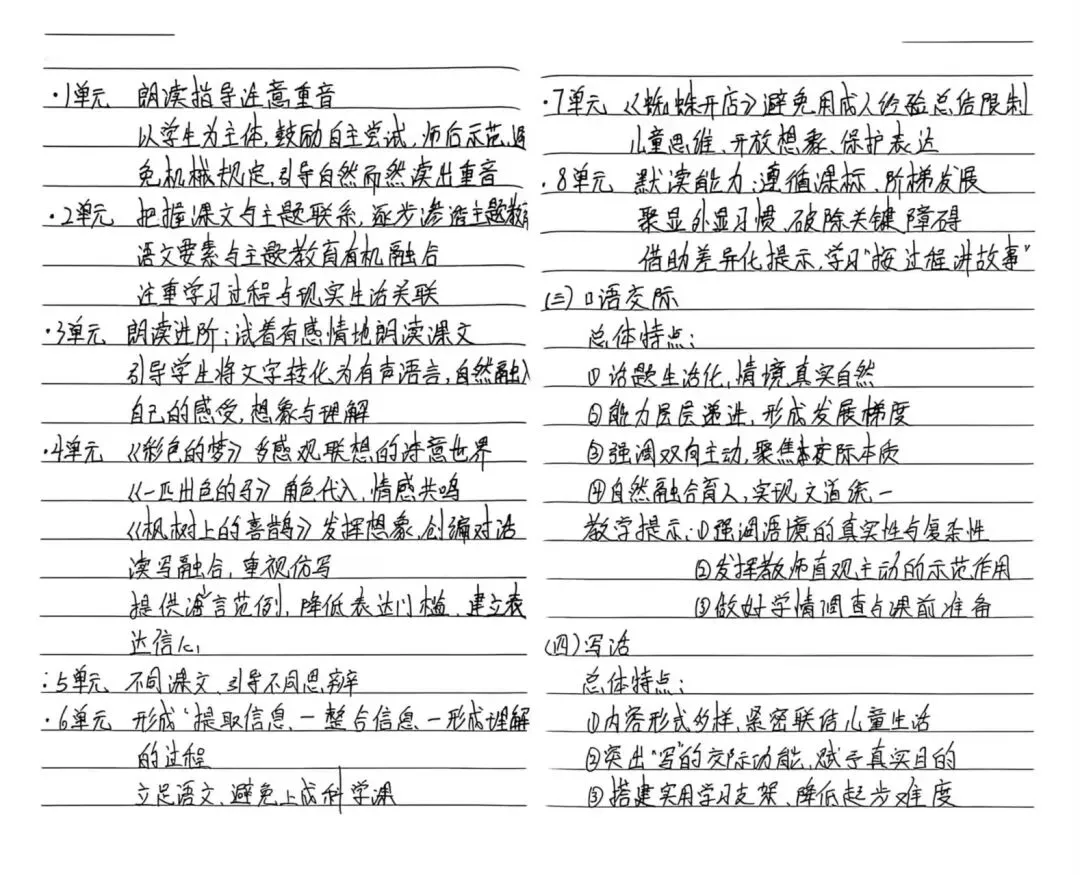 ·1单元 朗读指导注意重音
以学生为主体,鼓励自主尝试,师后示范,避
免机械规定,引导自然而然读出重音
·2单元 把握课文与主题联系,逐步渗透主题教育
语文要素与主题教育有机融合
注重学习过程与现实生活关联
·3单元 朗读进阶:试着有感情地朗读课文
引导学生将文字转化为有声语言,自然融入
自己的感受,想象与理解
·4单元 《彩色的梦》多感观联想的诗意世界
《一匹出色的马》角色代入,情感共鸣
《枫树上的喜鹊》发挥想象,创编对话
读写融合,重视仿写
提供语言范例,降低表达门槛、建立表
达信心
·5单元 不同课文、引导不同思辩
·6单元 形成“提取信息、一整合信息、一形成理解
的过程
立足语文、避免上成科学课
·7单元 《蜘蛛开店》避免用成人经验总结限制
儿童思维、开放想象、保护表达
·8单元 默读能力:遵循课标、阶梯发展
聚显外显习惯、破除关键障碍
借助差异化提示,学习“按过程讲故事”
(三)口语交际
总体特点:
①话题生活化,情境真实自然
②能力层层递进,形成发展梯度
③强调双向主动,聚焦交际本质
④自然融合育人,实现文道统一
教学提示:①强调语境的真实性与复杂性
②发挥教师直观主动的示范作用
③做好学情调查与课前准备
(四)写话
总体特点:
①内容形式多样,紧密联结儿童生活
②突出“写”的交际功能,赋予真实目的
③搭建实用学习支架、降低起步难度